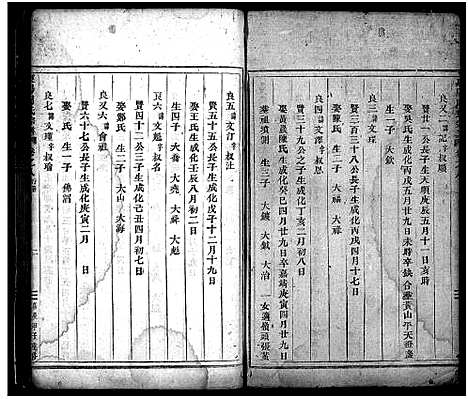 良又二諱記字叔順
賢廿一公長子生天順庚辰五月十一日亥時
娶吳氏生成化丙戌五月廿九日未時卒缺合葬黃山平天燈盞
生一子 大欽
良三諱文璨
賢三百三十八公長子生成化丙戌四月十七
娶陳氏 生二子 大福 大
良四諱文澤字叔恩
賢三十九公之子生成化丁亥十二月初八日
娶黃巖陳氏生成化癸巳四月廿九日卒嘉靖庚寅四月廿九日
葬祖墳側 生三子 大鏞 大鉞 大冶 一女適嶺頭張
良五諱文汀字叔注
賢五十五公長子生成化戊子十二月十九日
娶王氏生成化壬辰八月初二日
生四子 大喬 大堯 大舜 大彪
良六諱文魁字叔名
賢四十二公三子生成化己丑四月初七日
娶鄭氏 生二子 大山 大海
良又六諱會祖
賢六十七公長子生成化庚寅二月 日
娶 氏 生一子 佛滔
良七諱文瓊字叔瑜